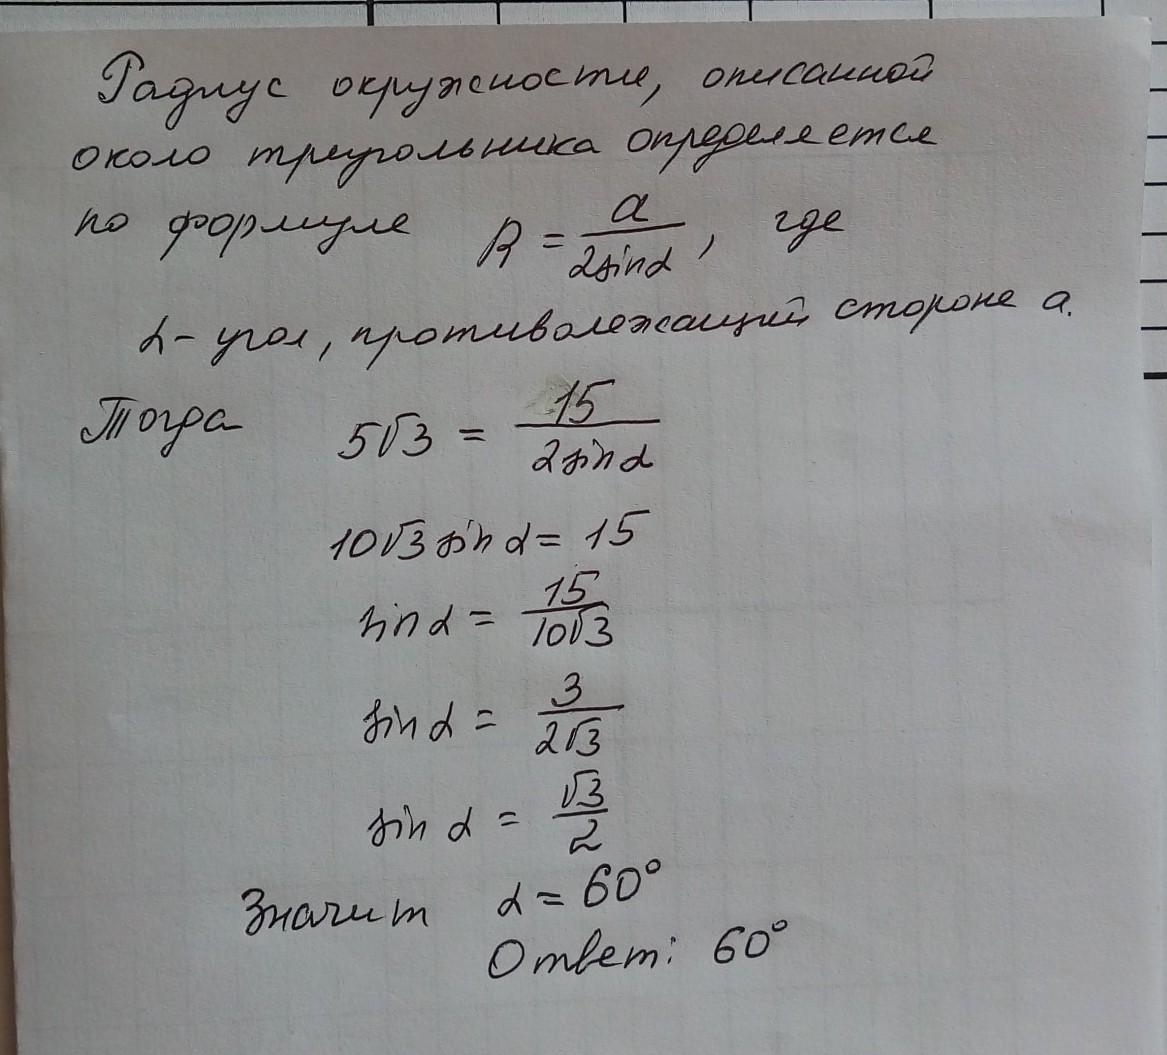 Радиус окружности, описанной
около треугольника определяется
по формуле R = a/2sinα, где
α - угол, противолежащий стороне a.
Тогда 5√3 = 15/2sinα
10√3 sin α = 15
sin α = 15/10√3
sin α = 3/2√3
sin α = √3/2
Значит α = 60°
Ответ: 60°